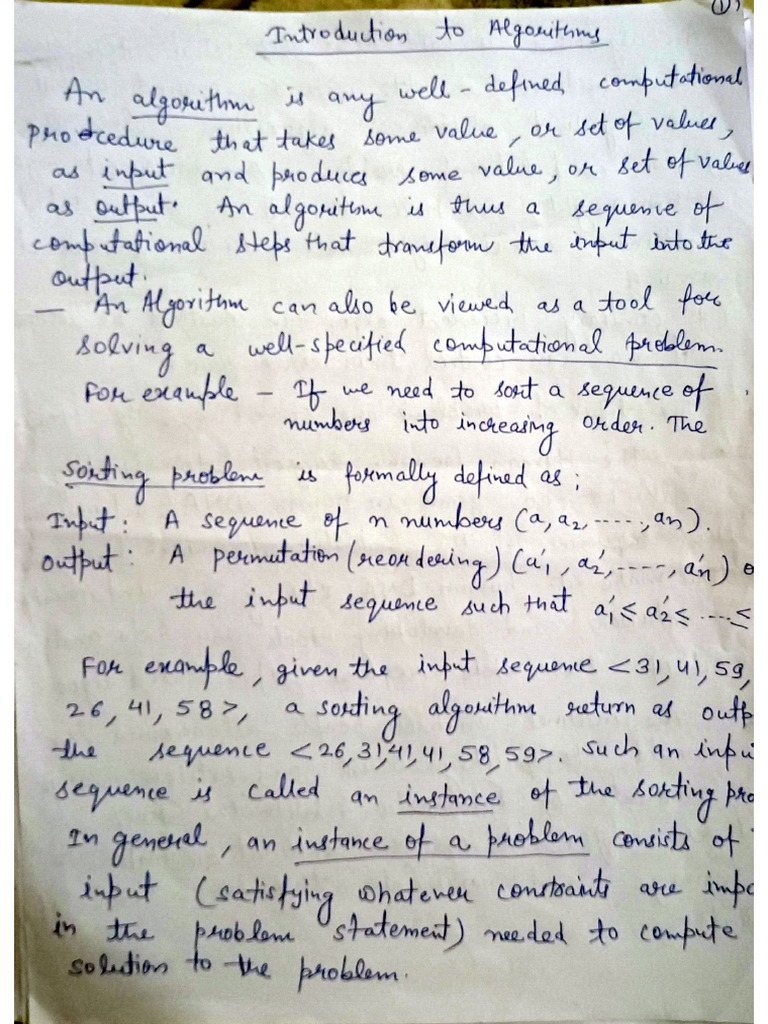 1)
Introduction to Algorithms
An algorithm is any well-defined computational
procedure that takes some value, or set of values,
as input and produces some value, or set of values
as output. An algorithm is thus a sequence of
computational steps that transform the input into the
output.
— An Algorithm can also be viewed as a tool for
solving a well-specified computational problem.
For example - If we need to sort a sequence of
numbers into increasing order. The
sorting problem is formally defined as;
Input: A sequence of n numbers (a, a2, -----, an).
Output: A permutation (reordering) (a'1, a'2, ----, a'n) o
the input sequence such that a'1 ≤ a'2 ≤ ---- ≤
For example, given the input sequence <31, 41, 59,
26, 41, 58>, a sorting algorithm return as outp
the sequence <26, 31, 41, 41, 58, 59>. Such an inpu
sequence is called an instance of the sorting pro
In general, an instance of a problem consists of
input (satisfying whatever constraints are impo
in the problem statement) needed to compute
solution to the problem.